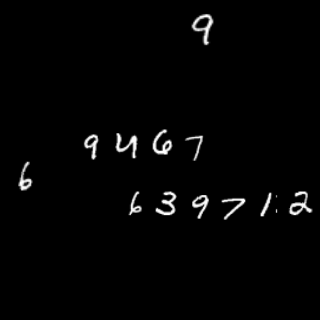 9
9467
6
639712